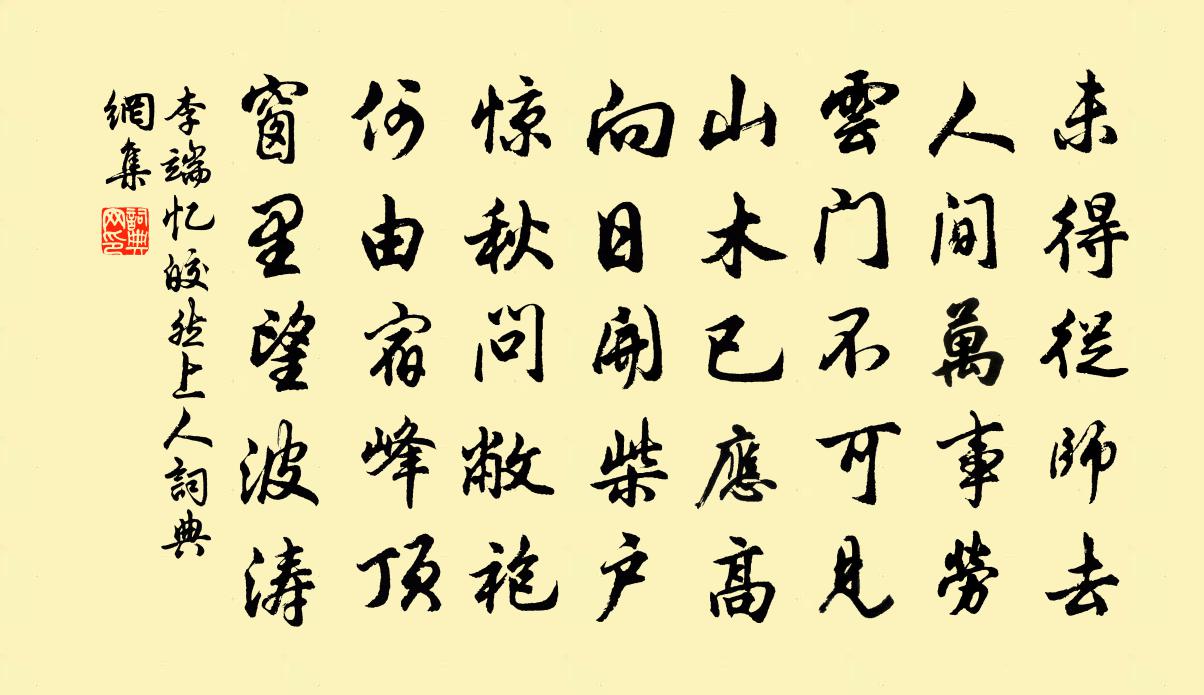 未得從師去
人间萬事勞
雲门不可見
山木已應高
向日開柴户
惊秋問敝袍
何由宿峰顶
窗里望波涛
李端忆皎然上人詞典
網集
詞典网印